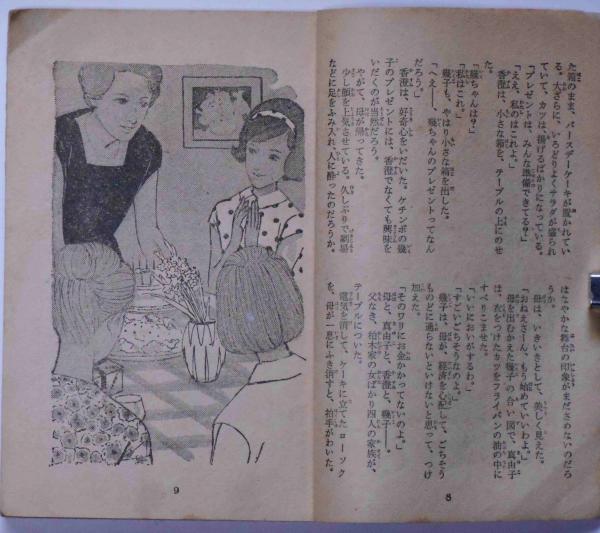 た箱のまま、バースデーケーキが置かれてい
る。大ざらに、いろどりよくサラダが盛られ
ていて、カツは、揚げるばかりになっている。
「プレゼントは、みんな準備できてる?」
「ええ、私のはこれよ。」
香澄は、小さな箱を、テーブルの上にのせ
た。
「幾ちゃんは?」
「私はこれ。」
幾子も、やはり小さな箱を出した。
「へえ——、幾ちゃんのプレゼントってなん
だろう。」
香澄は、好奇心をいだいた。ケチンボの幾
子のプレゼントには、香澄でなくても興味を
いだくのが当然だろう。
やがて、母が帰ってきた。
少し顔を上気させている。久しぶりで劇場
などに足をふみ入れ、人に酔ったのだろうか。
はなやかな舞台の印象がまださめないのだろ
うか。
母は、いきいきとして、美しく見えた。
「おねえさーん、もう始めていいわよ。」
母を出むかえた幾子の合い図で、真由子
は、衣をつけたカツをフライパンの油の中に
すべりこませた。
「いいにおいがするわ。」
「すごいごちそうなのよ。」
幾子は、母が、経済を心配して、ごちそう
ものどに通らないといけないと思って、つけ
加えた。
「そのワリにお金かかってないのよ。」
母と、真由子と、香澄と、幾子——。
父なき、柏木家の女ばかり四人の家族が、
テーブルについた。
電気を消して、ケーキに立てたローソク
を、母が一息にふき消すと、拍手がわいた。
8
9